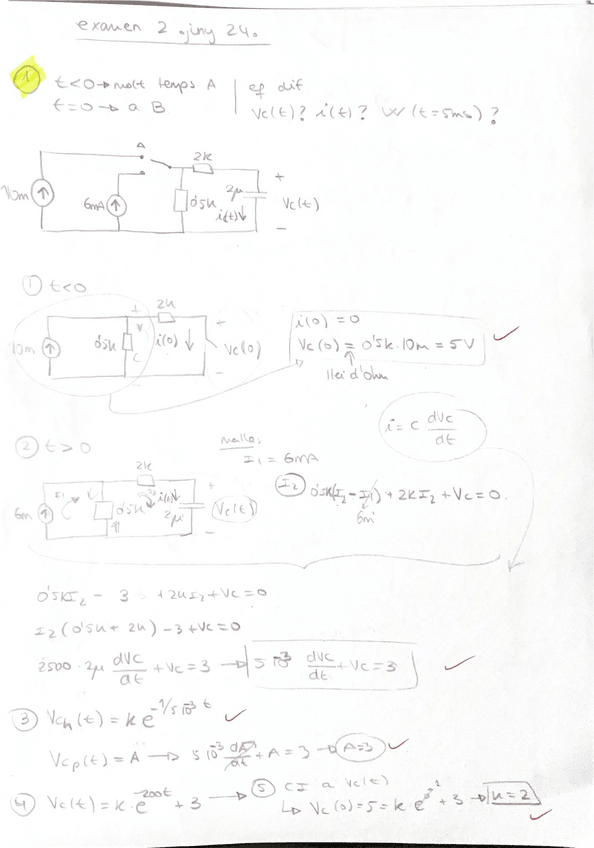 examen 2 juny 24.
1 t<0 → molt temps A | eq dif
t=0 → a B | Vc(t)? i(t)? W(t=5ms)?
A
2k
10m
6mA
0'5k
2μ
i(t)↓
+
Vc(t)
-
① t<0
2k
10m
0'5k
+
V
i(0)↓
+
Vc(0)
-
i(0) = 0
Vc(0) = 0'5k·10m = 5V ✓
llei d'ohm
i = c dVc/dt
② t>0
malla:
I1 = 6mA
2k
6m
I1
0'5k
i(t)↓
2μ
+
Vc(t)
-
I2 0'5k(I2 - I1) + 2kI2 + Vc = 0.
6m
0'5kI2 - 3 + 2kI2 + Vc = 0
I2(0'5k + 2k) - 3 + Vc = 0
2500 · 2μ dVc/dt + Vc = 3 → 5 10^-3 dVc/dt + Vc = 3 ✓
③ Vch(t) = k e^(-1/5 10^-3 t) ✓
Vcp(t) = A → 5 10^-3 dA/dt + A = 3 → A=3 ✓
④ Vc(t) = k·e^(-200t) + 3 → ⑤ CI a Vc(t)
↳ Vc(0) = 5 = k e^0 + 3 → k = 2 ✓